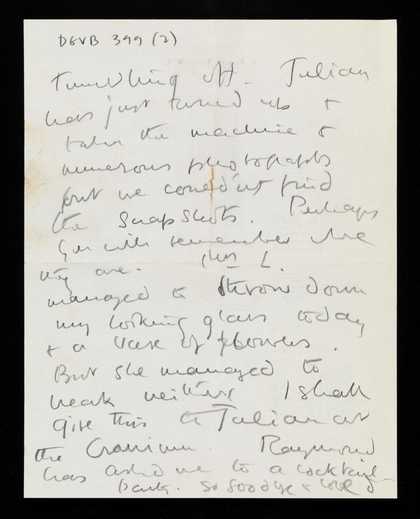 DGVB 399 (2)
Tumbling off. Julian
has just turned up &
taken the machine &
numerous photographs
but we couldn't find
the snapshots. Perhaps
you will remember where
they are. Mrs L.
managed to throw down
my looking glass today
& a vase of flowers.
But she managed to
break neither I shall
give this to Julian at
the Cranium. Raymond
has asked me to a cocktail
party. So goodbye & love D